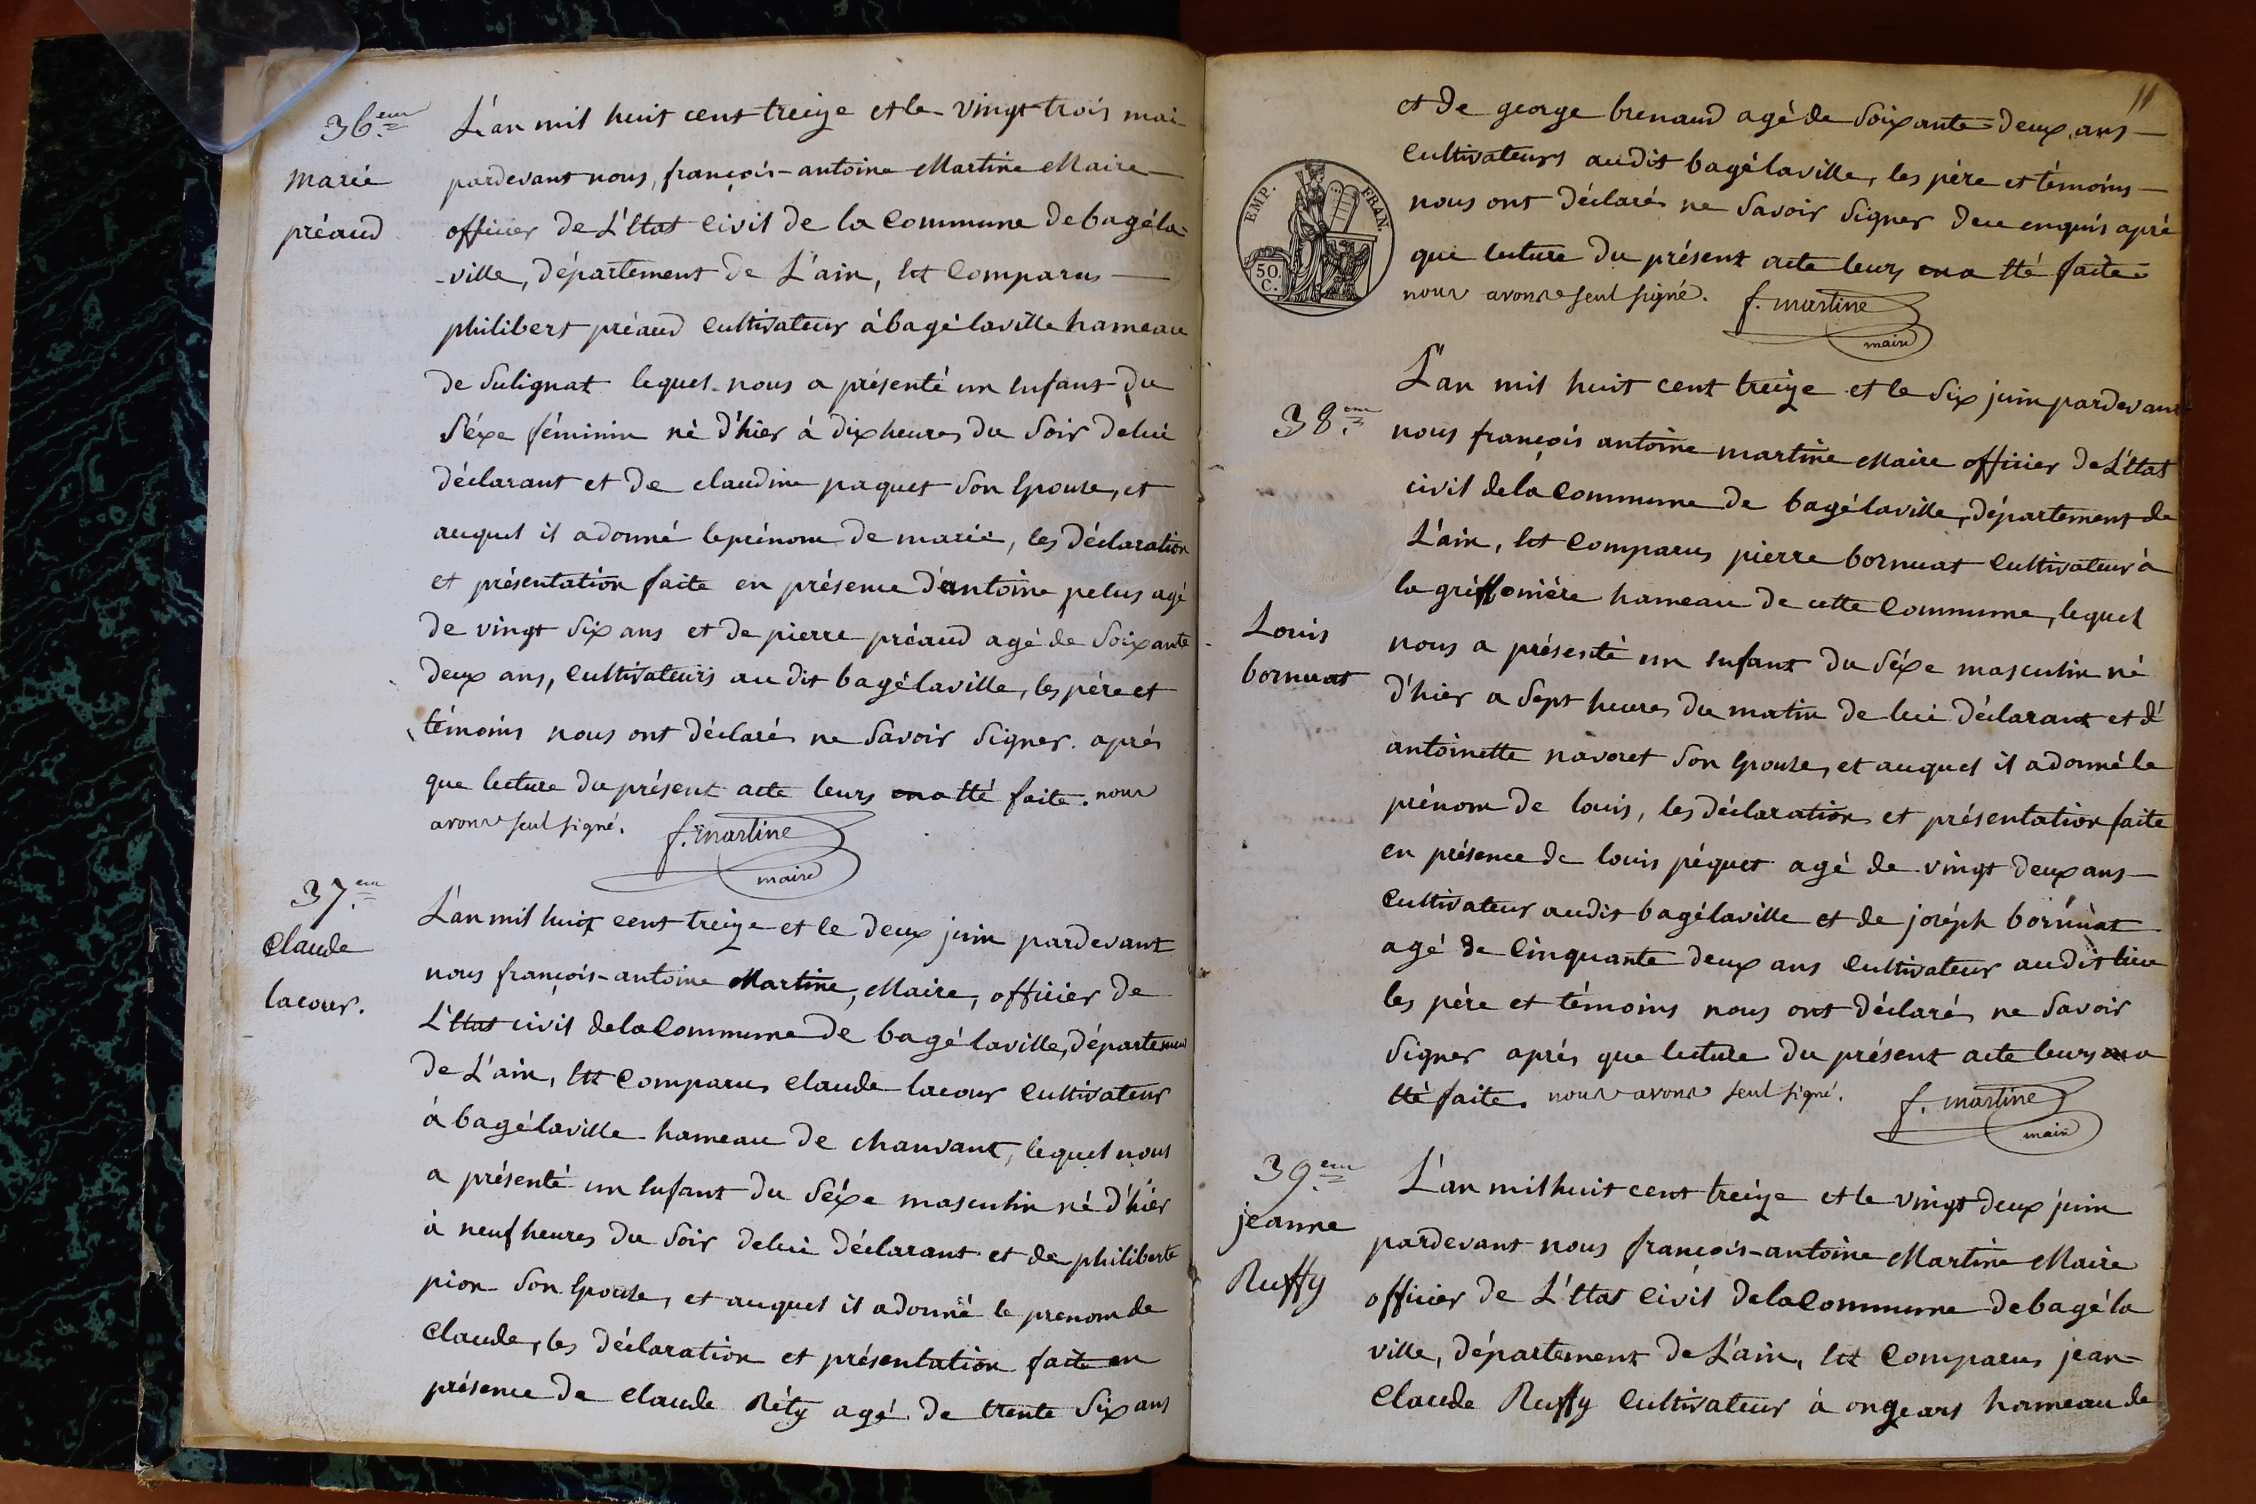 36.em
marie
préaud
L'an mil huit cent treize et le vingt trois mai
pardevant nous, françois-antoine Martine Maire
officier de L'Etat Civil de la Commune de bagéla-
-ville, département de L'ain, Est Comparus
philibert préaud Cultivateur à bagélaville hameau
de Sulignat lequel nous a présenté un Enfant du
Séxe féminin né d'hier à dix heures du Soir de lui
déclarant et de claudine paquet Son Epouse, et
auquel il a donné le prénom de marie, les déclaration
et présentation faite en présence d'antoine pelus agé
de vingt Six ans et de pierre préaud agé de Soixante
deux ans, Cultivateurs au dit bagélaville, les pére et
témoins nous ont déclarés ne Savoir Signer. aprés
que lecture du présent acte leurs en a Eté faite. nous
avons seul signé. f. martine
maire
37.em
Claude
lacour.
L'an mil huit cent treize et le deux juin pardevant
nous françois-antoine Martine, Maire, officier de
L'Etat civil de la Commune de bagélaville, département
de L'ain, Est Comparus Claude lacour Cultivateur
à bagélaville hameau de chanvant, lequel nous
a présenté un Enfant du Séxe masculin né d'hier
à neuf heures du Soir de lui déclarant et de philiberte
pion Son Epouse, et auquel il a donné le prenom de
Claude, les déclaration et présentation faite en
présence de Claude Réty agé de trente Six ans
11
et de george brenaud agé de Soixante deux ans
Cultivateurs audit bagélaville, les pére et témoins
nous ont déclarés ne Savoir Signer de ce enquis apré
que lecture du présent acte leurs en a Eté faite
nous avons seul signé. f. martine
maire
EMP. FRAN.
50.
C.
38.em
Louis
bornuat
L'an mil huit cent treize et le Six juin pardevant
nous françois antoine martine Maire officier de L'Etat
civil de la Commune de bagélaville, département de
L'ain, Est Comparus pierre bornuat Cultivateur à
la griffonière hameau de cette Commune, lequel
nous a présenté un Enfant du Séxe masculin né
d'hier a Sept heures du matin de lui déclarant et d'
antoinette navoret Son Epouse, et auquel il a donné le
prénom de louis, les déclaration et présentation faite
en présence de louis péquet agé de vingt deux ans
Cultivateur audit bagélaville et de joséph bornuat
agé de Cinquante deux ans Cultivateur audit lieu
les pére et témoins nous ont déclarés ne Savoir
Signer aprés que lecture du présent acte leurs en a
Eté faite. nous avons seul signé. f. martine
maire
39.em
jeanne
Ruffy
L'an mil huit cent treize et le vingt deux juin
pardevant nous françois-antoine Martine Maire
officier de L'Etat Civil de la Commune de bagéla
ville, département de L'ain, Est Comparus jean-
Claude Ruffy Cultivateur à ongears hameau de